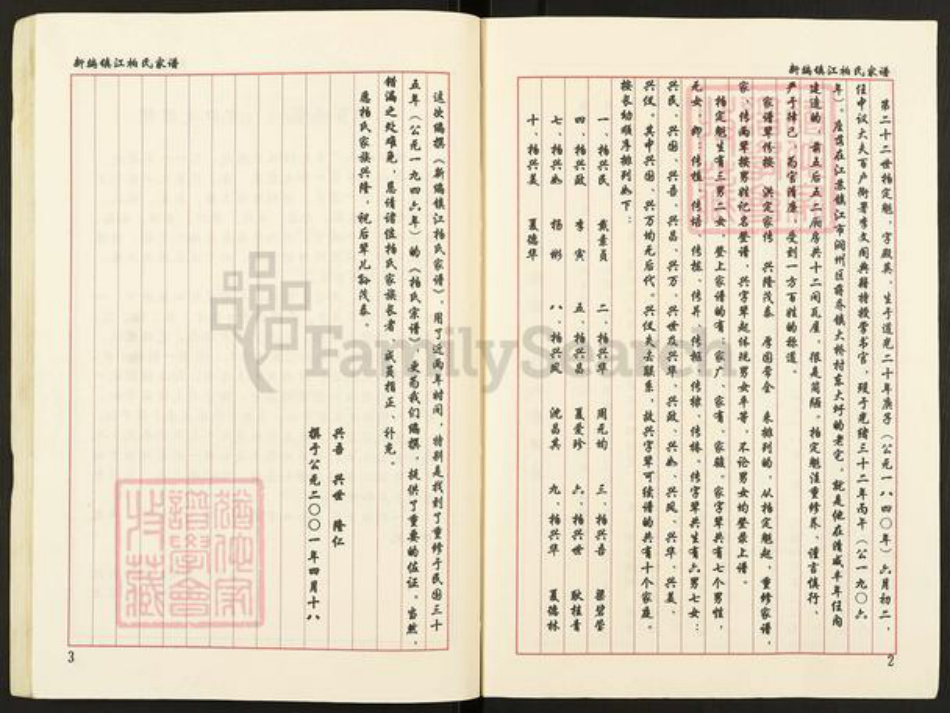 新编镇江杨氏家谱
第二十二世杨定魁，字殿英，生于道光二十年庚子（公元一八四〇年）六月初二，
任中议大夫百户衔署李文阁典籍特授学书官，殁于光绪三十二年丙午（公一九〇六
年）。座落在江苏镇江市润州区蒋乔镇大桥村东大圩的老宅，就是他在清咸丰年任内
建造的，前五后五二厢房共十二间瓦屋，很是简陋。杨定魁注重修养，谨言慎行、
严于律己，为官清廉，受到一方百姓的称道。
家谱辈传按 洪定家传 兴隆茂泰 厚国常金 来排列的，从杨定魁起，重修家谱，
家、传两辈按男姓记名登谱，兴字辈起体现男女平等，不论男女均登录上谱。
杨定魁生有三男二女，登上家谱的有：家广、家有、家骏。家字辈共有七个男性，
兴民、兴国、兴吾、兴昌、兴万、兴世及兴华、兴政、兴如、兴凤、兴华、兴美、
兴仪。其中兴国、兴万均无后代。兴仪失去联系，故兴字辈可续谱的共有十个家庭。
按长幼顺序排列如下：
一、杨兴民 戴素贞 二、杨兴华 周元均 三、杨兴吾 梁碧莹
四、杨兴政 李寅 五、杨兴昌 夏爱珍 六、杨兴世 耿桂香
七、杨兴如 杨彬 八、杨兴凤 沈昌其 九、杨兴华 夏德林
十、杨兴美 夏德华
2
新编镇江杨氏家谱
这次编撰《新编镇江杨氏家谱》，用了近两年时间，特别是找到了重修于民国三十
五年（公元一九四六年）的《杨氏宗谱》，更为我们编撰，提供了重要的佐证。当然，
错漏之处难免，恳请诸位杨氏家族长者、成员指正、补充。
愿杨氏家族兴隆，祝后辈儿孙茂泰。
兴吾 兴世 隆仁
撰于公元二〇〇一年四月十八
3
FamilySearch